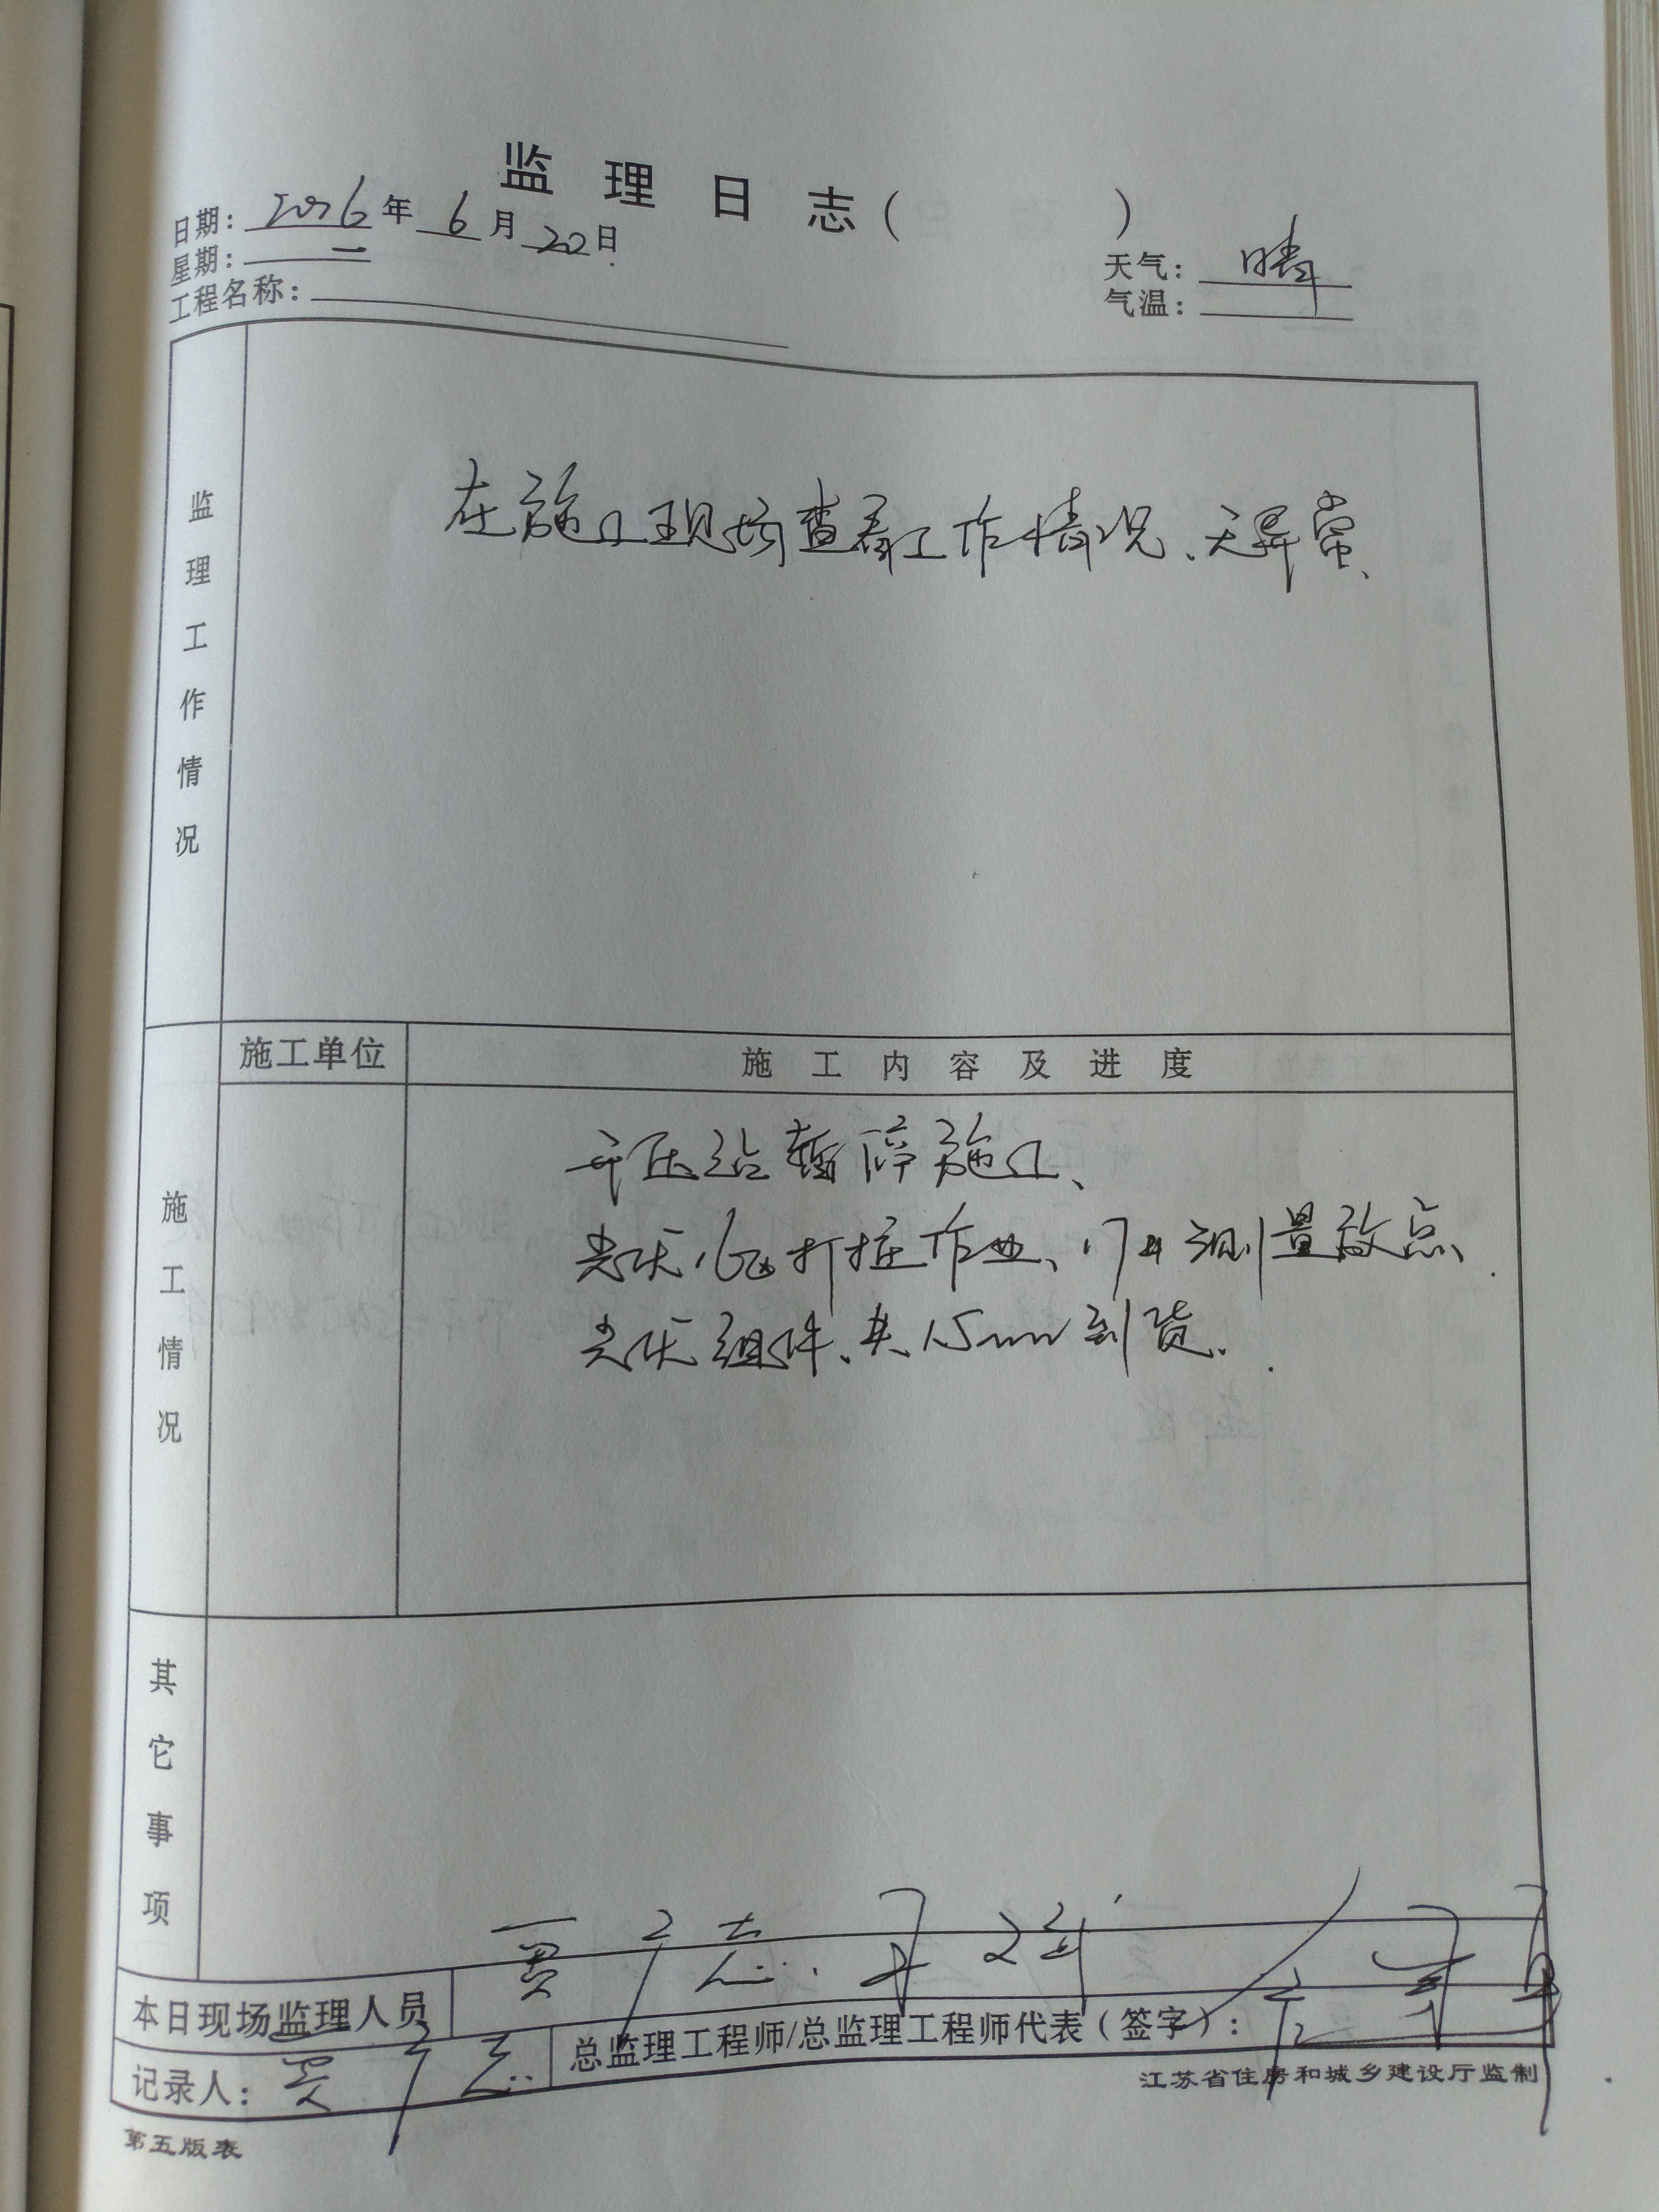 监理日志（　　）
日期：2016年6月20日
星期：一
天气：晴
气温：
工程名称：
监理工作情况
在施工现场查看工作情况、无异常、
施工情况
施工单位
施工内容及进度
升压站暂停施工、
光伏16#打桩作业、17#测量放点、
光伏组件、共1.5mw到货.
其它事项
本日现场监理人员
贾广志
记录人：贾广志
总监理工程师/总监理工程师代表（签字）：
江苏省住房和城乡建设厅监制
第五版表